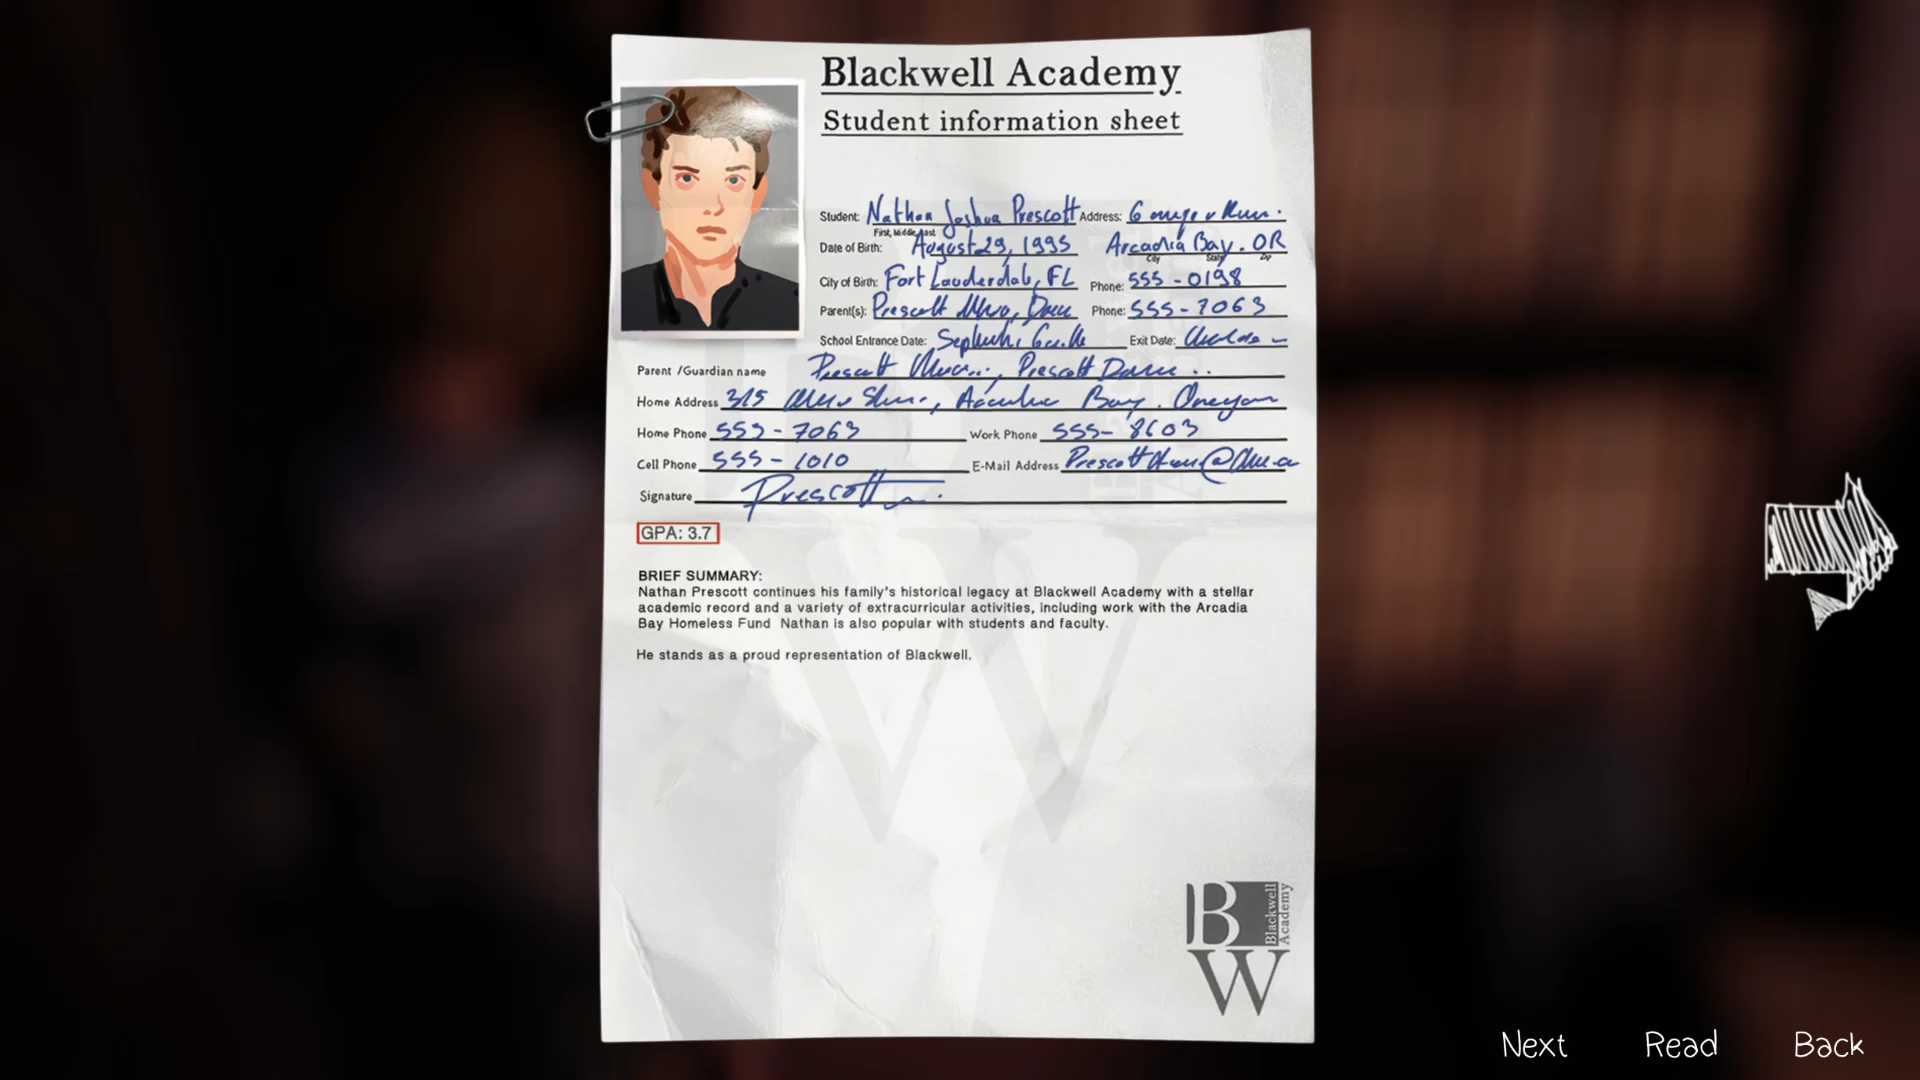 Blackwell Academy
Student information sheet
Student: Nathan Joshua Prescott Address:
First, Middle, Last
Date of Birth: August 29, 1995 Arcadia Bay. OR
City State Zip
City of Birth: Fort Lauderdale, FL Phone: 555-0198
Parent(s): Prescott Phone: 555-7063
School Entrance Date: Exit Date:
Parent /Guardian name Prescott Prescott
Home Address 315 Bay. Oregon
Home Phone 555-7063 Work Phone 555-8603
Cell Phone 555-1010 E-Mail Address
Signature Prescott
GPA: 3.7
BRIEF SUMMARY:
Nathan Prescott continues his family's historical legacy at Blackwell Academy with a stellar
academic record and a variety of extracurricular activities, including work with the Arcadia
Bay Homeless Fund Nathan is also popular with students and faculty.
He stands as a proud representation of Blackwell.
B Blackwell Academy
W
Next Read Back